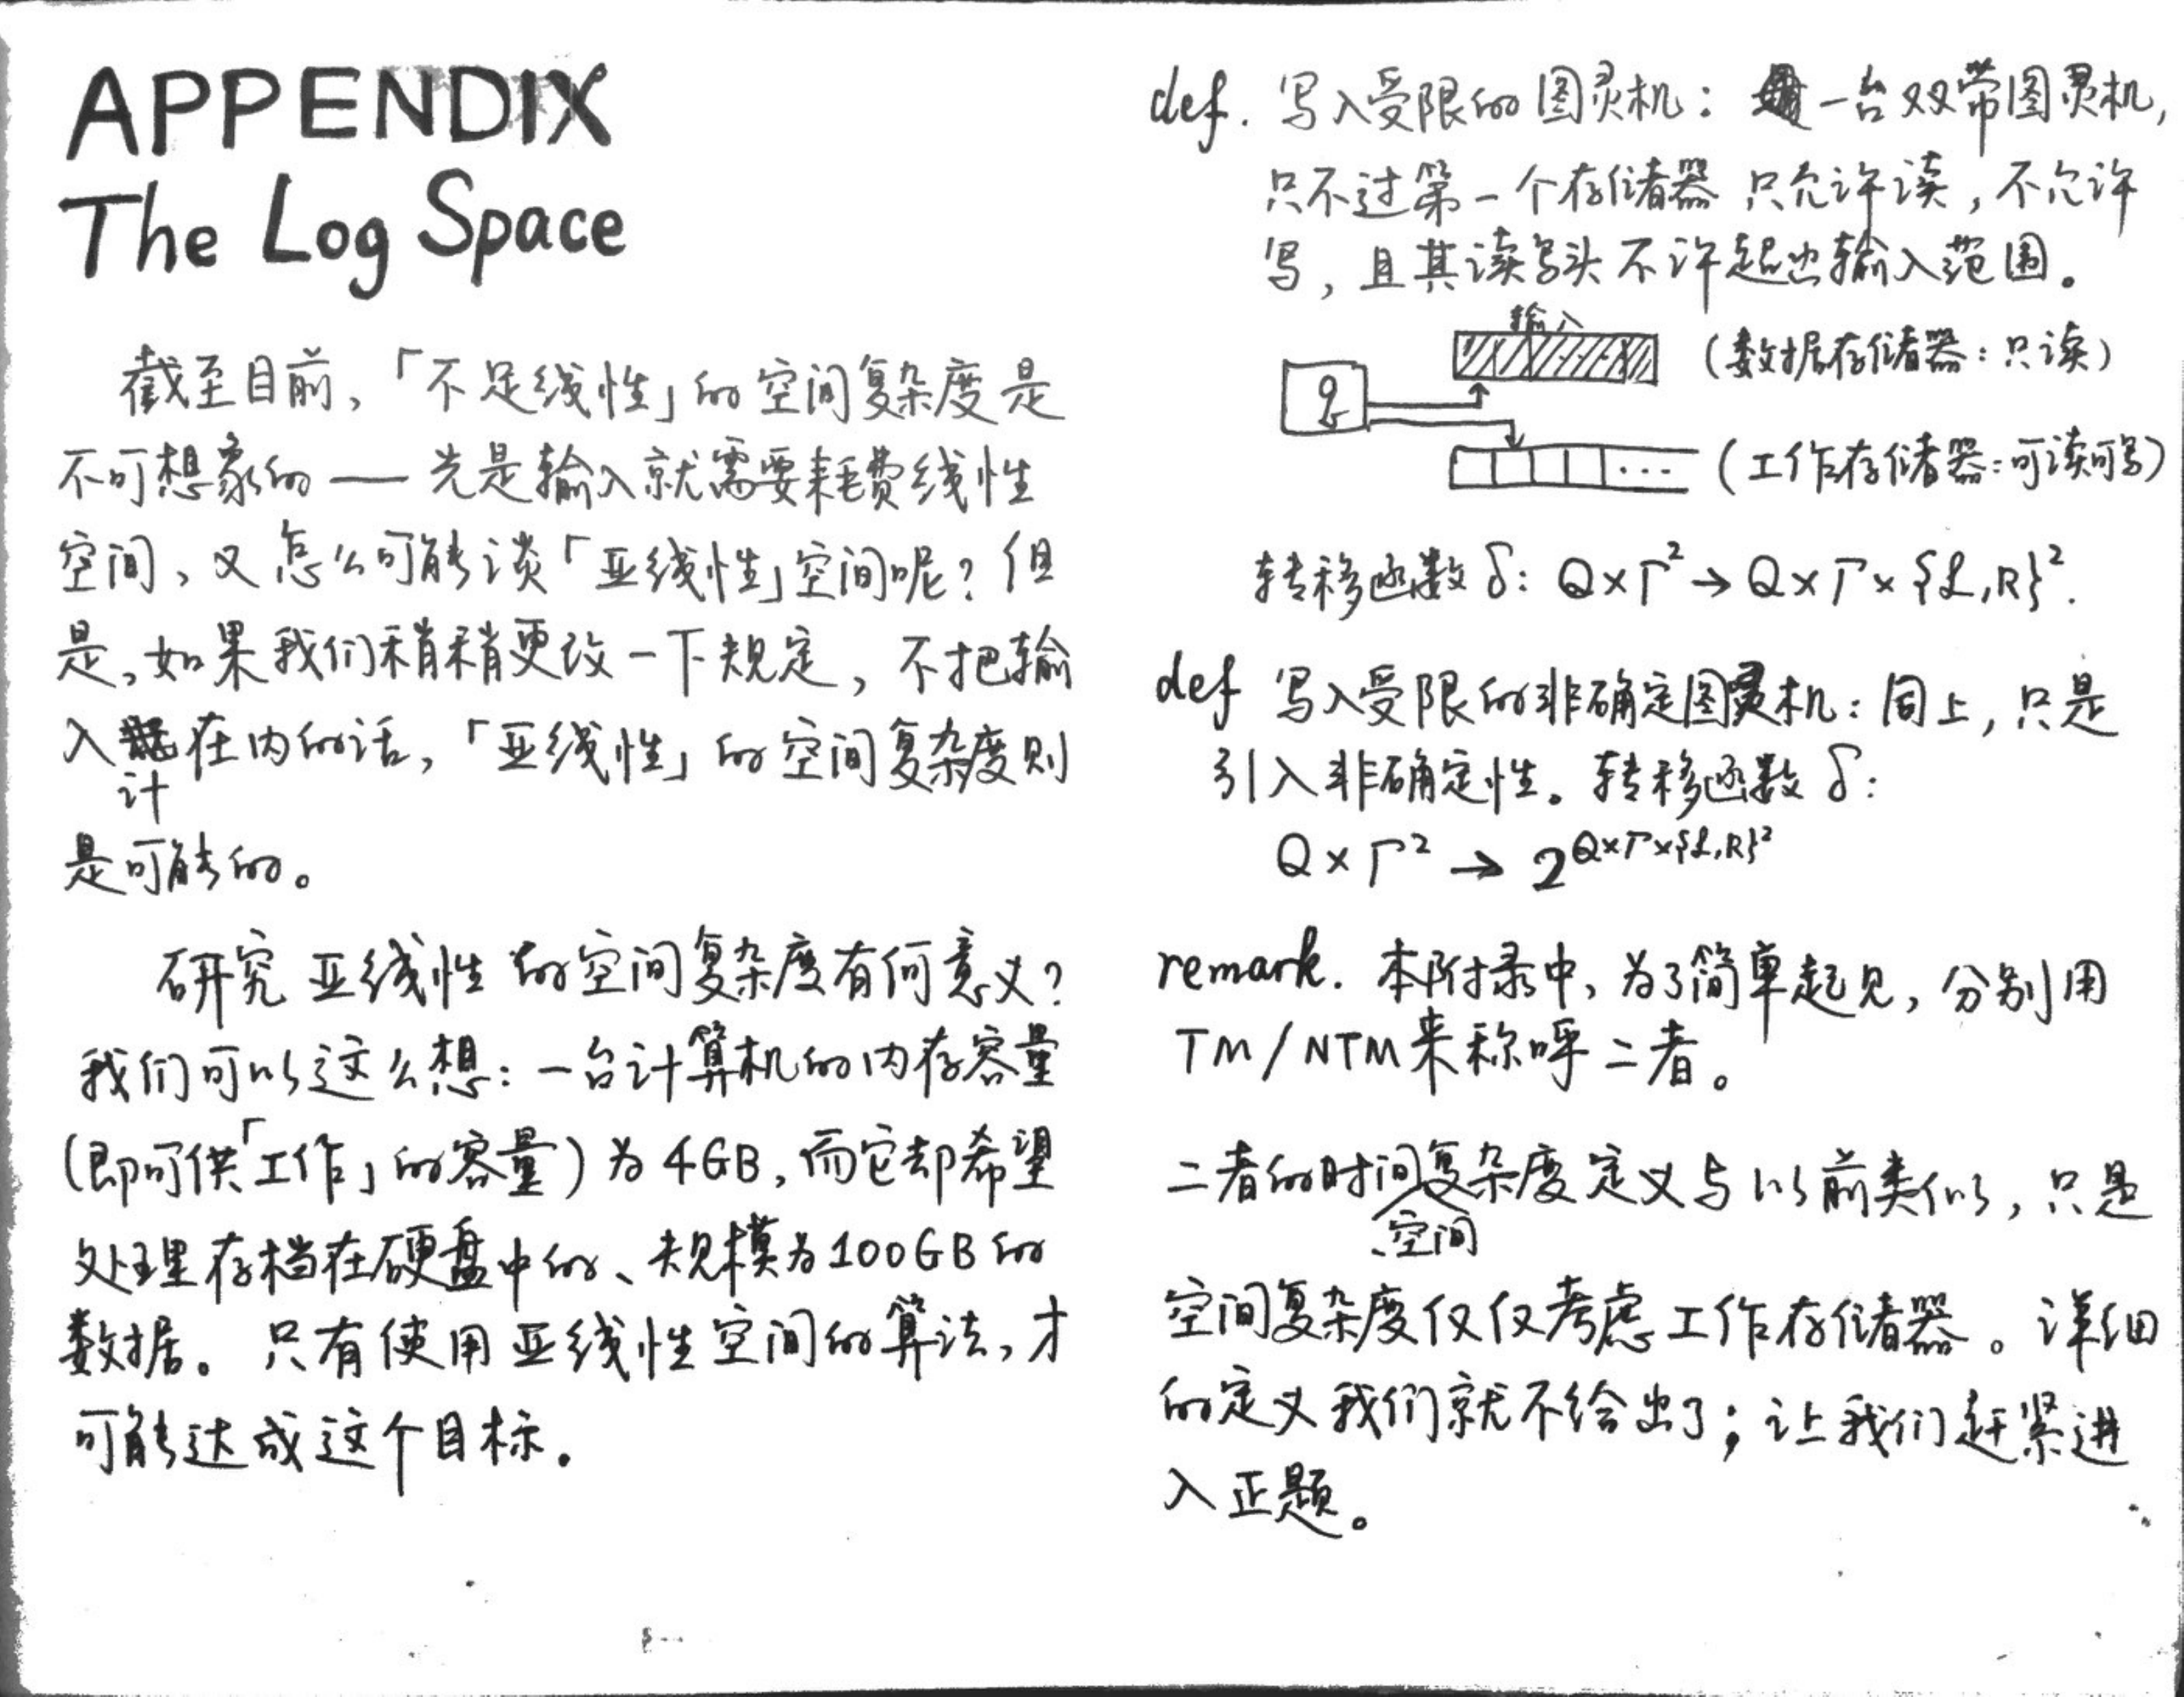 APPENDIX
The Log Space
截至目前,「不足线性」的空间复杂度是
不可想象的——光是输入就需要耗费线性
空间,又怎么可能谈「亚线性」空间呢?但
是,如果我们稍稍更改一下规定,不把输
入计在内的话,「亚线性」的空间复杂度则
是可能的。
研究亚线性的空间复杂度有何意义?
我们可以这么想:一台计算机的内存容量
(即可供「工作」的容量)为4GB,而它却希望
处理存档在硬盘中的、规模为100GB的
数据。只有使用亚线性空间的算法,才
可能达成这个目标。
def. 写入受限的图灵机:一台双带图灵机,
只不过第一个存储器只允许读,不允许
写,且其读写头不许超出输入范围。
输入
(数据存储器:只读)
q
(工作存储器:可读可写)
...
转移函数 δ: Q×Γ² → Q×Γ×{L,R}².
def 写入受限的非确定图灵机:同上,只是
引入非确定性。转移函数 δ:
Q×Γ² → 2^{Q×Γ×{L,R}²}
remark. 本附录中,为了简单起见,分别用
TM/NTM来称呼二者。
二者的时间、空间复杂度定义与以前类似,只是
空间复杂度仅仅考虑工作存储器。详细
的定义我们就不给出了;让我们赶紧进
入正题。